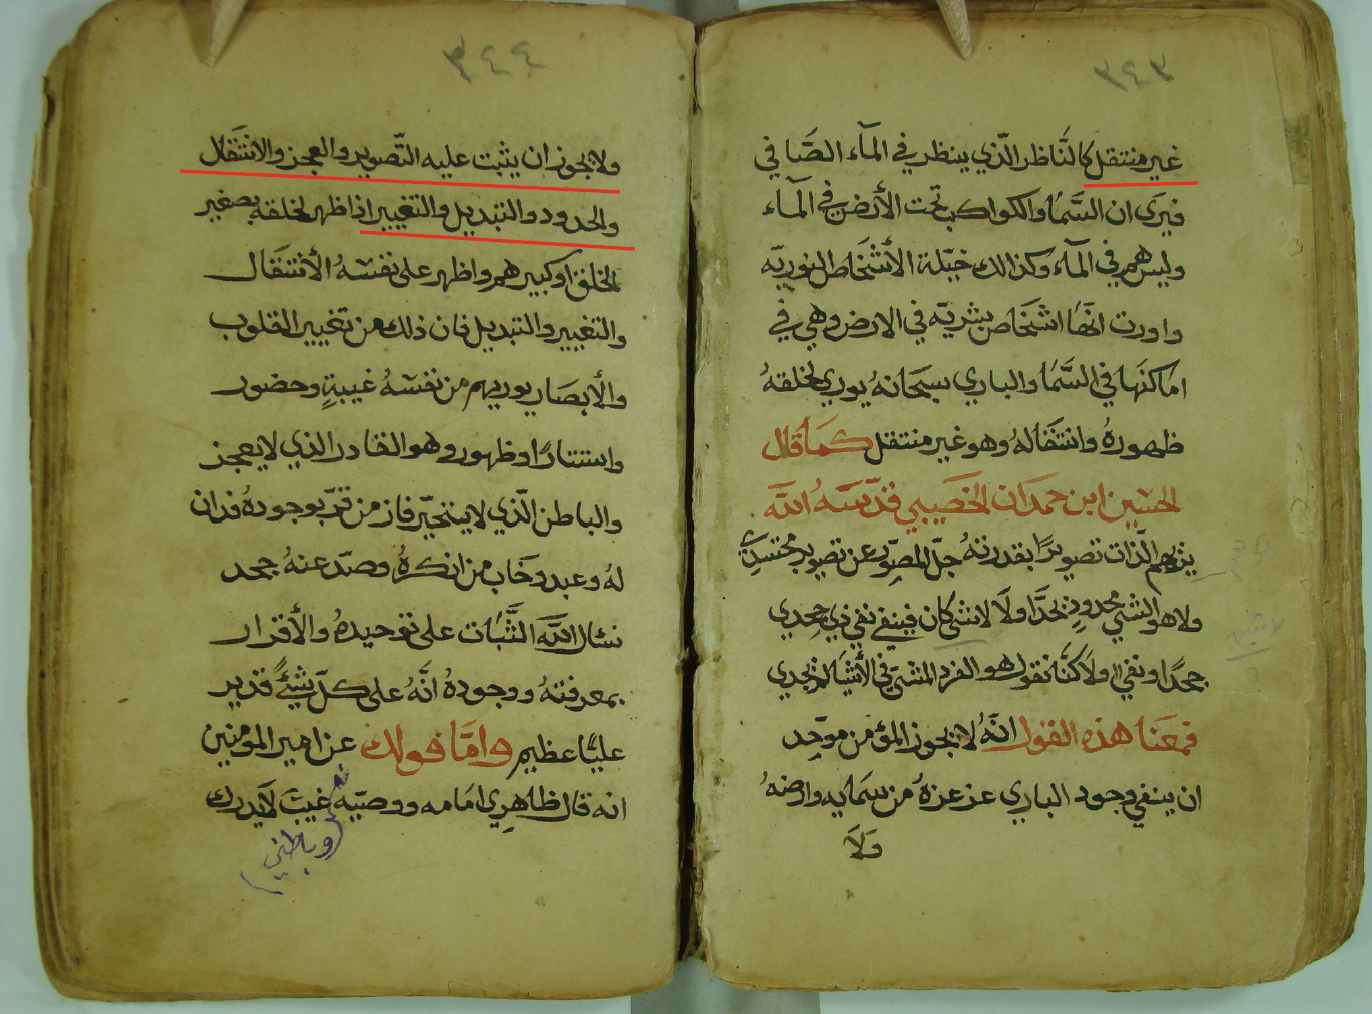 ٣٤٣
غير منتقل كالنّاظر الّذي ينظر في المآء الصّافي
فيرى ان السّما والكواكب تحت الأرض في المآء
وليس هم في المآء وكذالك خيّلة الأشخاص النوريّه
واورت انّها اشخاص بشريّه في الارض وهي في
اماكنها في السّما والباري سبحانهُ يوري لخلقهُ
ظهورهُ وانتقالهُ وهو غير منتقل كما قال
الحسين ابن حمدان الخصيبي قدّسهُ الله
يريهم الّذات تصويرًا بقدرتهُ جلّ المصوّر عن تصوير مجتسدِ
ولا هو الشي محدودٍ بحدّا ولَا لا شي كان فينفي نفي ذي جحدي
جحدًا ونفيا ولاكنّا نقول هو الفرد المشي في الأشيا لم يحدي
فمعنا هذه القول انّهُ لا يجوز المؤمن موحّد
ان ينفي وجود الباري عز عزهُ من سمايه وارضهُ
ولَا
٣٤٤
ولا يجوز ان يثبت عليه التّصوير والعجز والانتقال
والحدود والتبديل والتغيير اذا ظهر لخلقه بصغير
الخلق او كبيرهم واظهر على نفسهُ الأنتقال
والتغيير والتبديل فان ذلك من تغيير القلوب
والأبصار يوريهم من نفسهُ غيبةٍ وحضور
واستتارًا وظهور وهو القادر الذي لا يعجز
والباطن الّذي لا يتحيّر فاز من قرّ بوجودهُ فدان
لهُ وعبد وخاب من انكرهُ وصدّ عنهُ جحد
نسال الله الثّبات على توحيدهُ والأقرار
بمعرفتهُ ووجودهُ انّهُ على كلّ شيءٍ قدير
عليًا عظيم وامّا قولك عن امير المومنين
انه قال ظاهري امامه ووصيّه غيب لا يدرك
وباطني